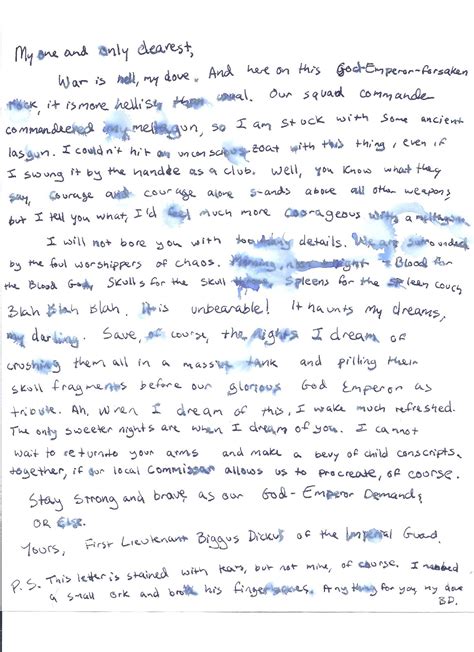 My one and only dearest,
War is hell, my dove. And here on this God-Emperor-forsaken
rock, it is more hellish than usual. Our squad commande
commandeered my meltagun, so I am stuck with some ancient
lasgun. I couldn't hit an unconscious zoat with this thing, even if
I swung it by the handle as a club. Well, you know what they
say, courage and courage alone stands above all other weapons,
but I tell you what, I'd feel much more courageous with a meltagun
I will not bore you with too many details. We are surrounded
by the foul worshippers of chaos. Morning, night Blood for
the Blood God, Skulls for the Skull Spleens for the spleen couch
Blah Blah Blah. It is unbearable! It haunts my dreams,
my darling. Save, of course, the nights I dream of
crushing them all in a massive tank and pilling their
skull fragments before our glorious God Emperor as
tribute. Ah, when I dream of this, I wake much refreshed.
The only sweeter nights are when I dream of you. I cannot
wait to return to your arms and make a bevy of child conscripts,
together, if our local Commissar allows us to procreate, of course.
Stay strong and brave, as our God-Emperor Demands
OR Else.
Yours, First Lieutenant Biggus Dickus of the Imperial Guard.
P.S. This letter is stained with tears, but not mine, of course. I
a small ork and broke his finger Anything for you, my dove
BD.